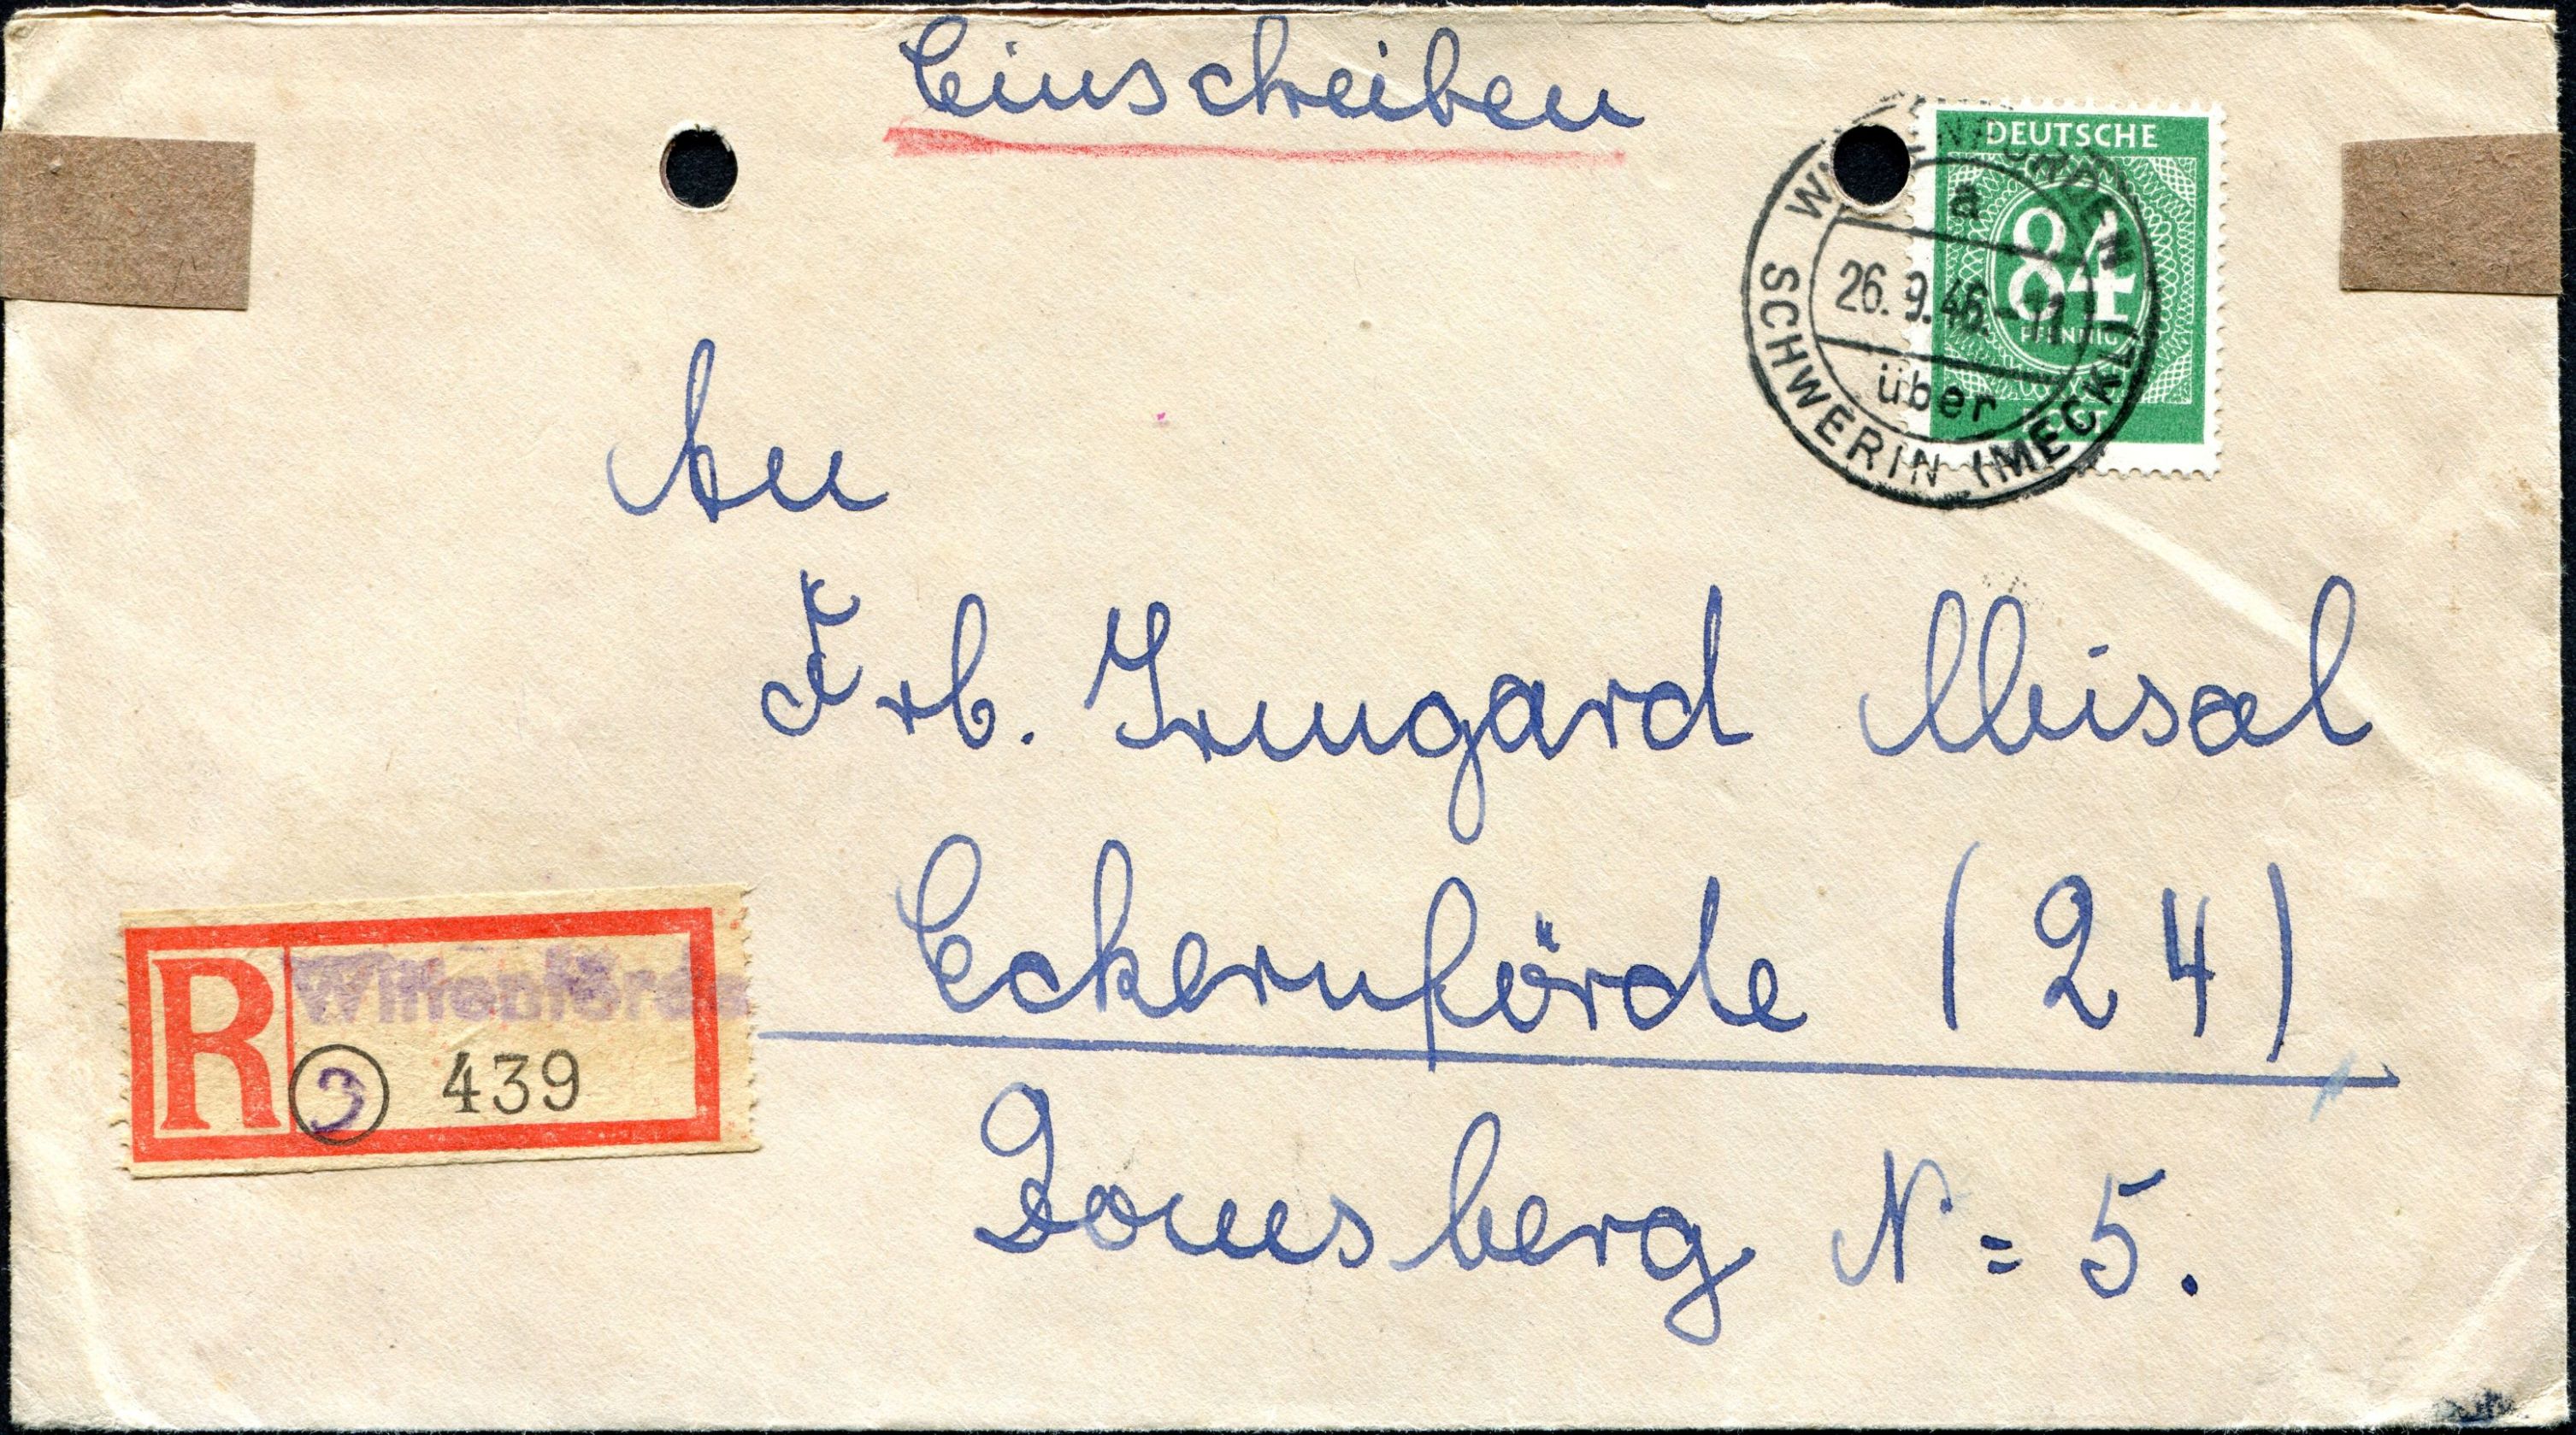 Einschreiben
DEUTSCHE
84
PFENNIG
POST
a
26.9.46.-11
über
SCHWERIN (MECKL)
An
Frl. Irmgard Misal
Eckernförde (24)
Domsberg N = 5.
R
Wittenförde
3
439